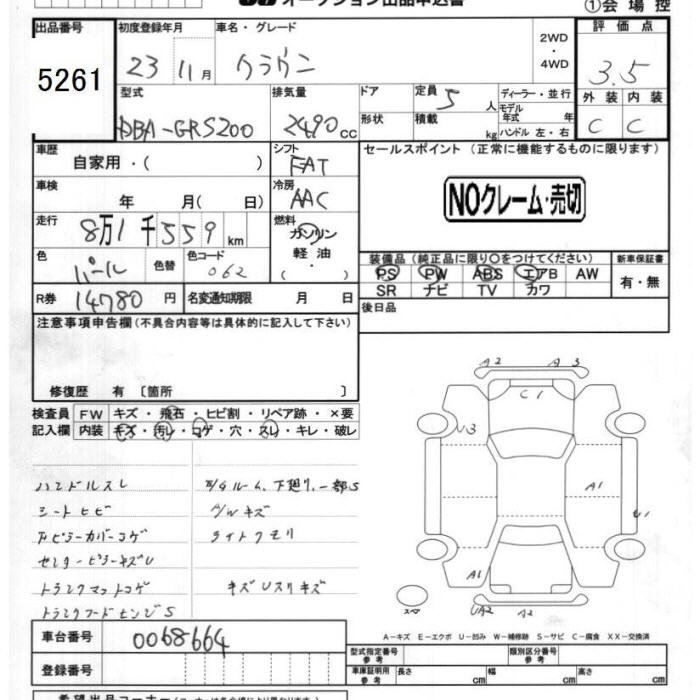 オークション出品申込書
①会場控
出品番号
5261
初度登録年月
23 11月
車名・グレード
クラウン
2WD
・
4WD
評価点
3.5
外装 内装
C C
型式
DBA-GRS200
排気量
2490cc
ドア
形状
定員 5人
積載 kg
ディーラー・並行
モデル年式 年
ハンドル 左・右
車歴
自家用・( )
シフト
FAT
セールスポイント(正常に機能するものに限ります)
NOクレーム・売切
車検
年 月( 日)
冷房
AAC
走行
8万1千559km
燃料
ガソリン
軽油・
( ・ )
色
パール
色替
色コード
062
装備品(純正品に限り○をつけてください)
PS PW ABS エアB AW
SR ナビ TV カワ
新車保証書
有・無
R券 14780円
名変通知期限 月 日
後日品
注意事項申告欄(不具合内容等は具体的に記入して下さい)
修復歴 有 〔箇所 〕
検査員記入欄
FW キズ・飛石・ヒビ割・リペア跡・×要
内装 キズ・汚レ・コゲ・穴・スレ・キレ・破レ
ハンドルスレ
シートヒビ
ピラーカバーコゲ
センターピラーキズU
トランクマットコゲ
トランクフードヒンジS
ルーム、下廻り、一部S
A/Wキズ
ライトクモリ
キズUスリキズ
A2 A3
C1
U3
A1
U1
A1
UA2 A2
スペア
A-キズ E-エクボ U-凹み W-補修跡 S-サビ C-腐食 XX-交換済
車台番号
0068664
登録番号
型式指定番号 参考
類別区分番号 参考
車庫証明用 参考
長さ cm
幅 cm
高さ cm
希望出品コーナー